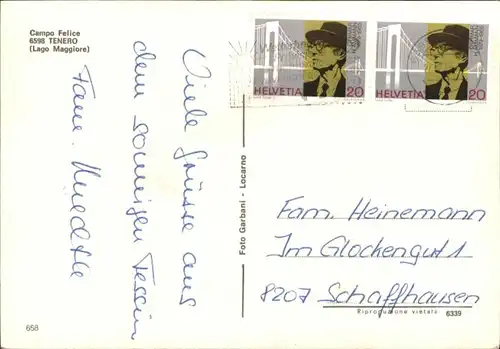 Campo Felice
6598 TENERO
(Lago Maggiore)
Viele Grüsse aus
dem sonnigen Tessin
Fam.
658
Foto Garbani - Locarno
HELVETIA 20
HELVETIA 20
Fam. Heinemann
Im Glockengut 1
8207 Schaffhausen
Riproduzione vietata 6339